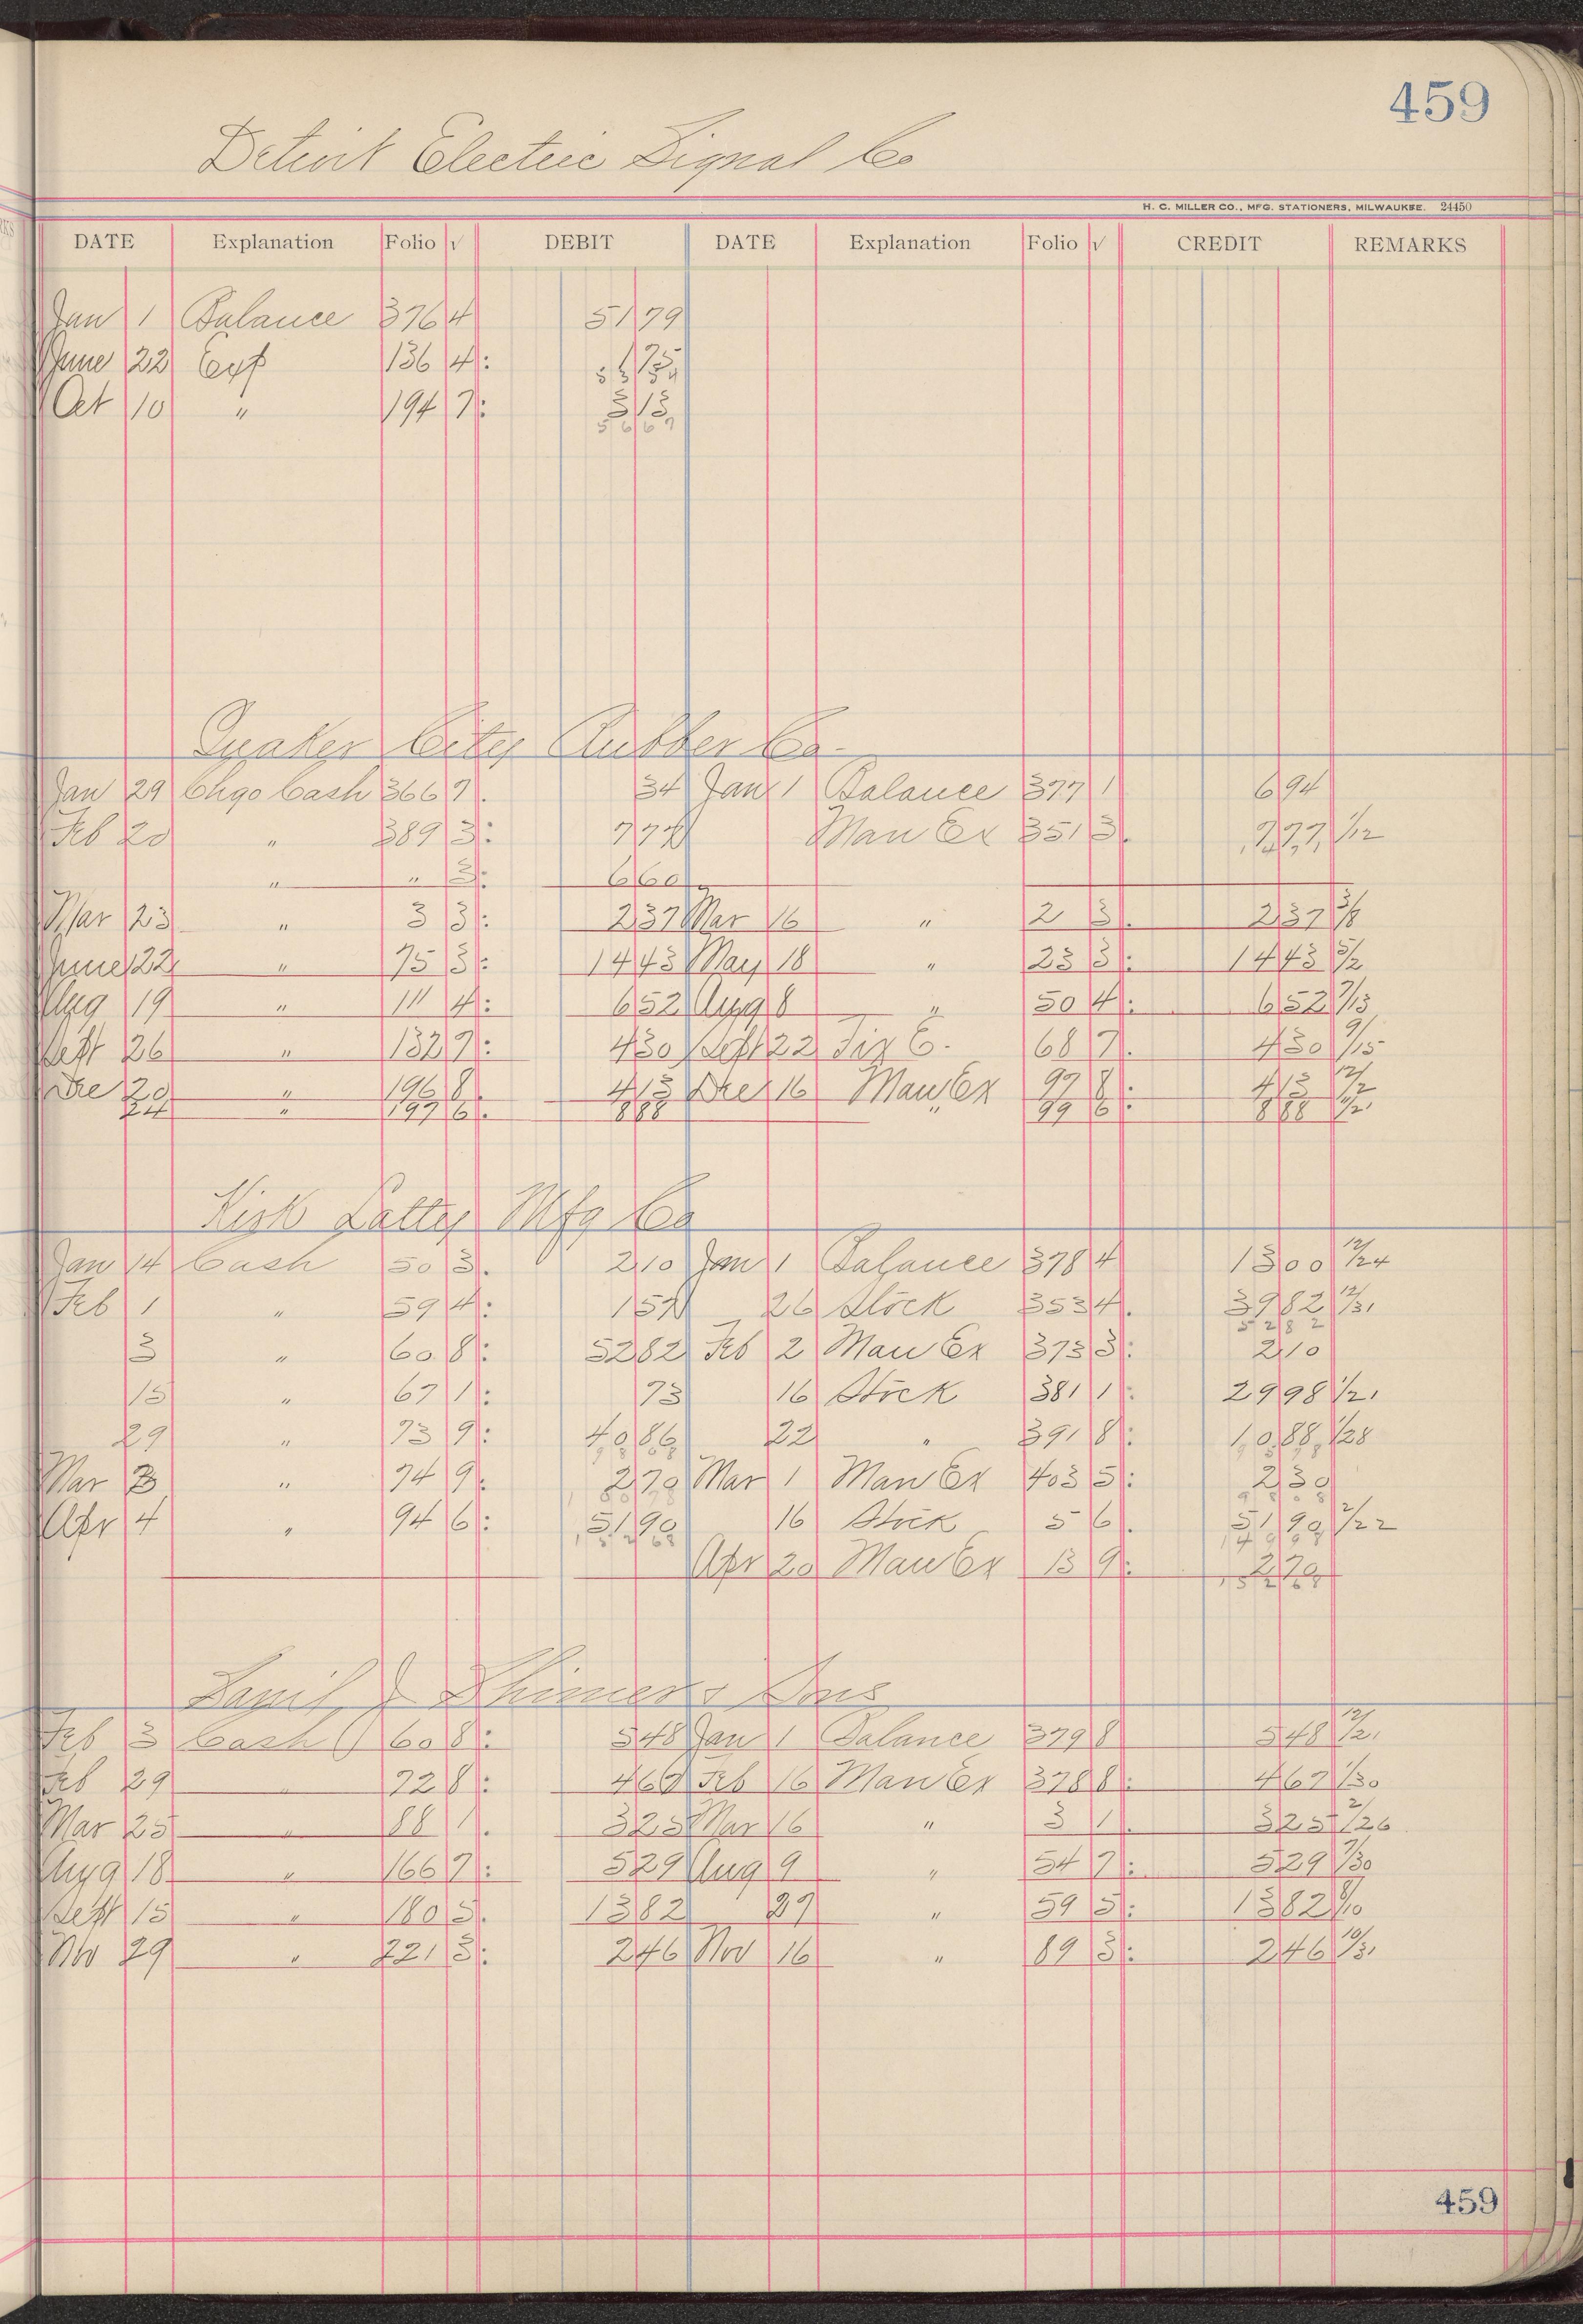 459
Detroit Electric Signal Co
H. C. MILLER CO., MFG. STATIONERS, MILWAUKEE. 24450
DATE Explanation Folio √ DEBIT DATE Explanation Folio √ CREDIT REMARKS
Jan 1 Balance 376 4 51 79
June 22 Exp 136 4: 1 75
Oct 10 " 194 7: 3 13
56 67
Quaker City Rubber Co
Jan 29 Chgo Cash 366 7. 34 Jan 1 Balance 377 1 6 94
Feb 20 " 389 3: 7 77 Man Ex 351 3. 7 77 1/12
" " 3: 6 60
Mar 23 " 3 3: 2 37 Mar 16 " 2 3. 2 37 3/8
June 22 " 75 3: 14 43 May 18 " 23 3: 14 43 5/2
Aug 19 " 111 4: 6 52 Aug 8 " 50 4: 6 52 7/13
Sept 26 " 132 7: 4 30 Sept 22 68 7. 4 30 9/15
Dec 20 " 196 8. 4 13 Dec 16 Man Ex 97 8: 4 13 12/2
24 " 197 6. 8 88 " 99 6: 8 88
Kirk Latty Mfg Co
Jan 14 Cash 50 3. 2 10 Jan 1 Balance 378 4 13 00 12/24
Feb 1 " 59 4: 1 57 26 Stock 353 4. 39 82 12/31
52 82
3 " 60 8: 52 82 Feb 2 Man Ex 373 3: 2 10
15 " 67 1: 73 16 Stock 381 1: 29 98 1/21
29 " 73 9: 40 86 22 " 391 8: 10 88 1/28
Mar 3 " 74 9. 2 70 Mar 1 Man Ex 403 5: 2 30
Apr 4 " 94 6: 51 90 16 Stock 5 6. 51 90 2/22
Apr 20 Man Ex 13 9: 2 70
Shimer & Sons
Feb 3 Cash 60 8: 5 48 Jan 1 Balance 379 8 5 48 12/21
Feb 29 " 72 8: 4 67 Feb 16 Man Ex 378 8: 4 67 1/30
Mar 25 " 88 1. 3 25 Mar 16 " 3 1. 3 25 2/26
Aug 18 " 166 7: 5 29 Aug 9 " 54 7: 5 29 7/30
Sept 15 " 180 5. 13 82 27 " 59 5: 13 82 8/10
Nov 29 " 221 3: 2 46 Nov 16 " 89 3: 2 46 10/31
459